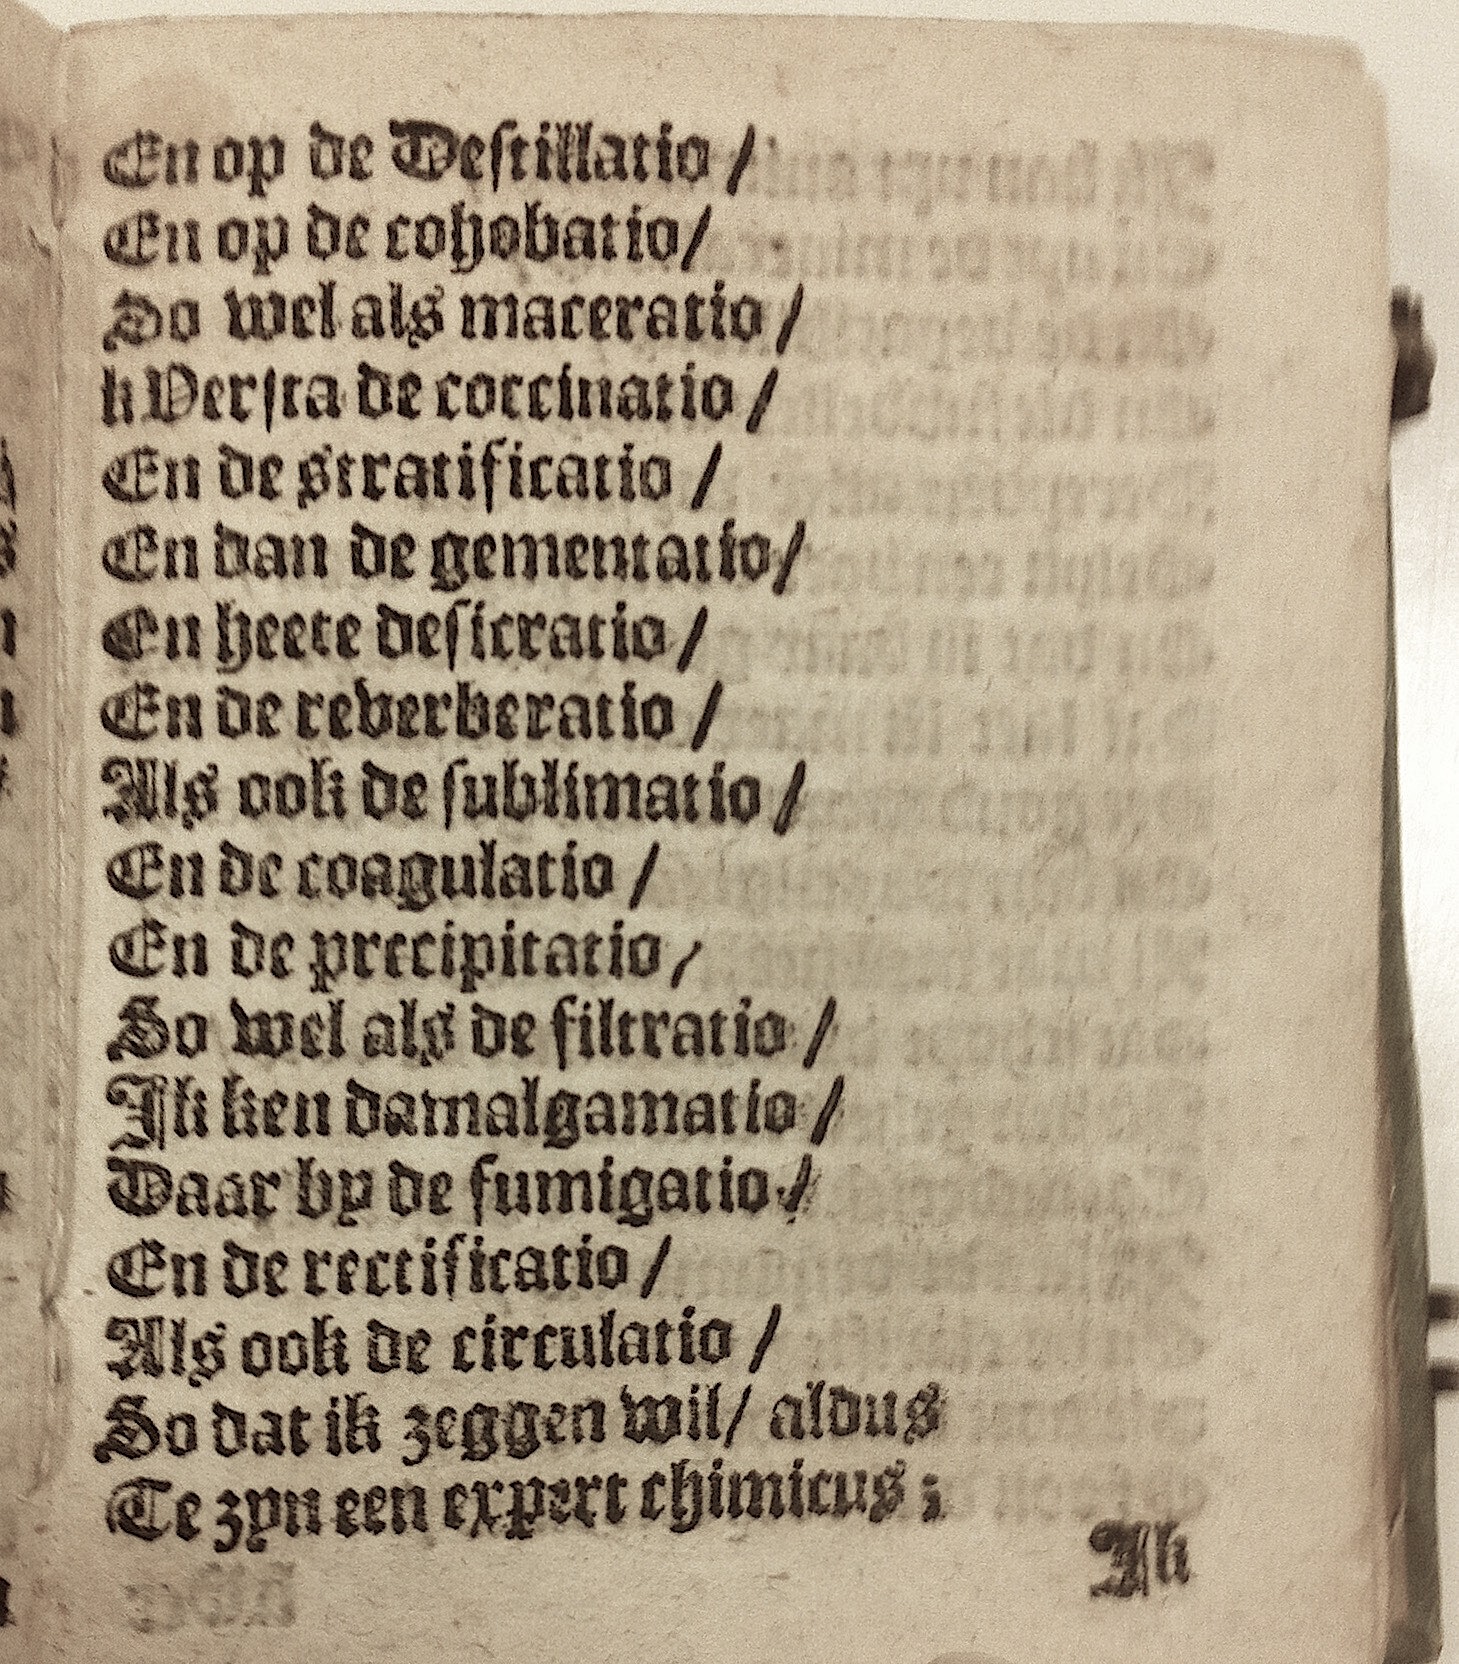 En op de Destillatio /
En op de cohobatio/
So wel als maceratio /
k Versta de corcinatio /
En de stratificatio /
En dan de gementatio/
En heete desicratio /
En de reverberatio /
Als ook de sublimatio /
En de coagulatio /
En de precipitatio /
So wel als de filtratio /
Ik ken damalgamatio /
Daar by de fumigatio /
En de rectificatio /
Als ook de circulatio /
So dat ik zeggen wil/ aldus
Te zyn een expert chimicus ;
Ik